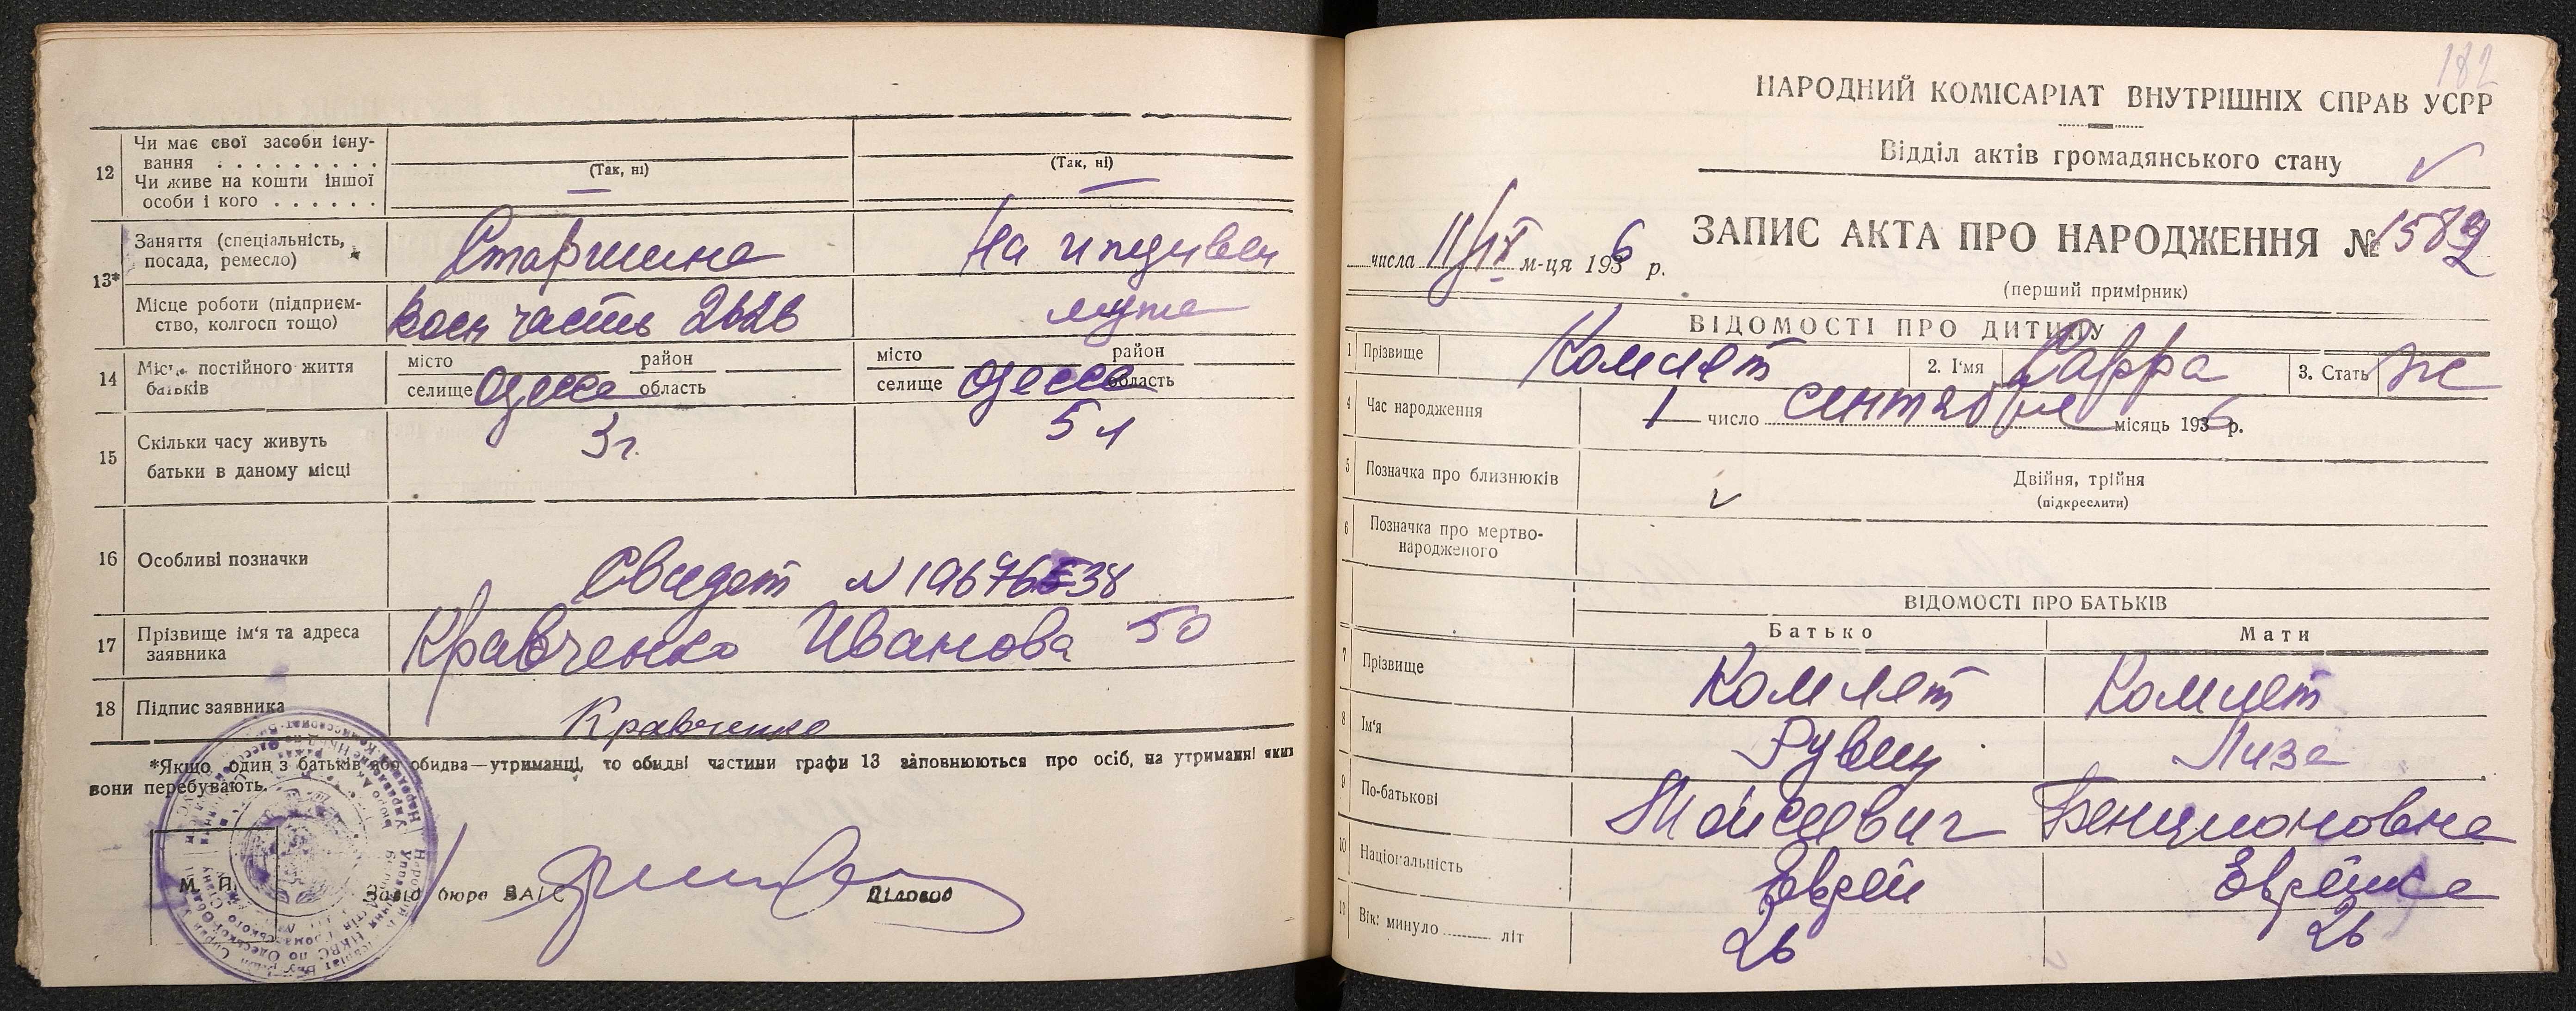 12
Чи має свої засоби існу-
вання . . . . . . . . .
Чи живе на кошти іншої
особи і кого . . . . . .
(Так, ні)
—
(Так, ні)
—
13*
Заняття (спеціальність,
посада, ремесло)
Старшина
На иждивен
Місце роботи (підприєм-
ство, колгосп тощо)
Воен часть 2626
мужа
14
Місце постійного життя
батьків
місто район
селище Одесса область
місто район
селище Одесса область
15
Скільки часу живуть
батьки в даному місці
3 г.
5 л
16
Особливі позначки
Свидет N
17
Прізвище ім'я та адреса
заявника
Кравченко Иванова 50
18
Підпис заявника
Кравченко
*Якщо один з батьків або обидва—утриманці, то обидві частини графи 13 заповнюються про осіб, на утриманні яких
вони перебувають.
М. П.
Завід бюро ЗАГС
Діловод
182
НАРОДНИЙ КОМІСАРІАТ ВНУТРІШНІХ СПРАВ УСРР
Відділ актів громадянського стану
ЗАПИС АКТА ПРО НАРОДЖЕННЯ № 1582
числа 11/IX м-ця 1936 р.
(перший примірник)
ВІДОМОСТІ ПРО ДИТИНУ
1 Прізвище Комлет 2. Ім'я Сарра 3. Стать ж
4 Час народження 1 число сентября місяць 1936 р.
5 Позначка про близнюків
Двійня, трійня
(підкреслити)
6 Позначка про мертво-
народженого
ВІДОМОСТІ ПРО БАТЬКІВ
Батько Мати
7 Прізвище Комлет Комлет
8 Ім'я Рувин Лиза
9 По-батькові Мойсеевич Бенционовна
10 Національність Еврей Еврейка
11 Вік: минуло ........ літ 26 26